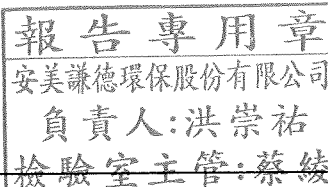 報告專用章
安美謙德環保股份有限公司
負責人:洪崇祐
檢驗室主管:蔡綾